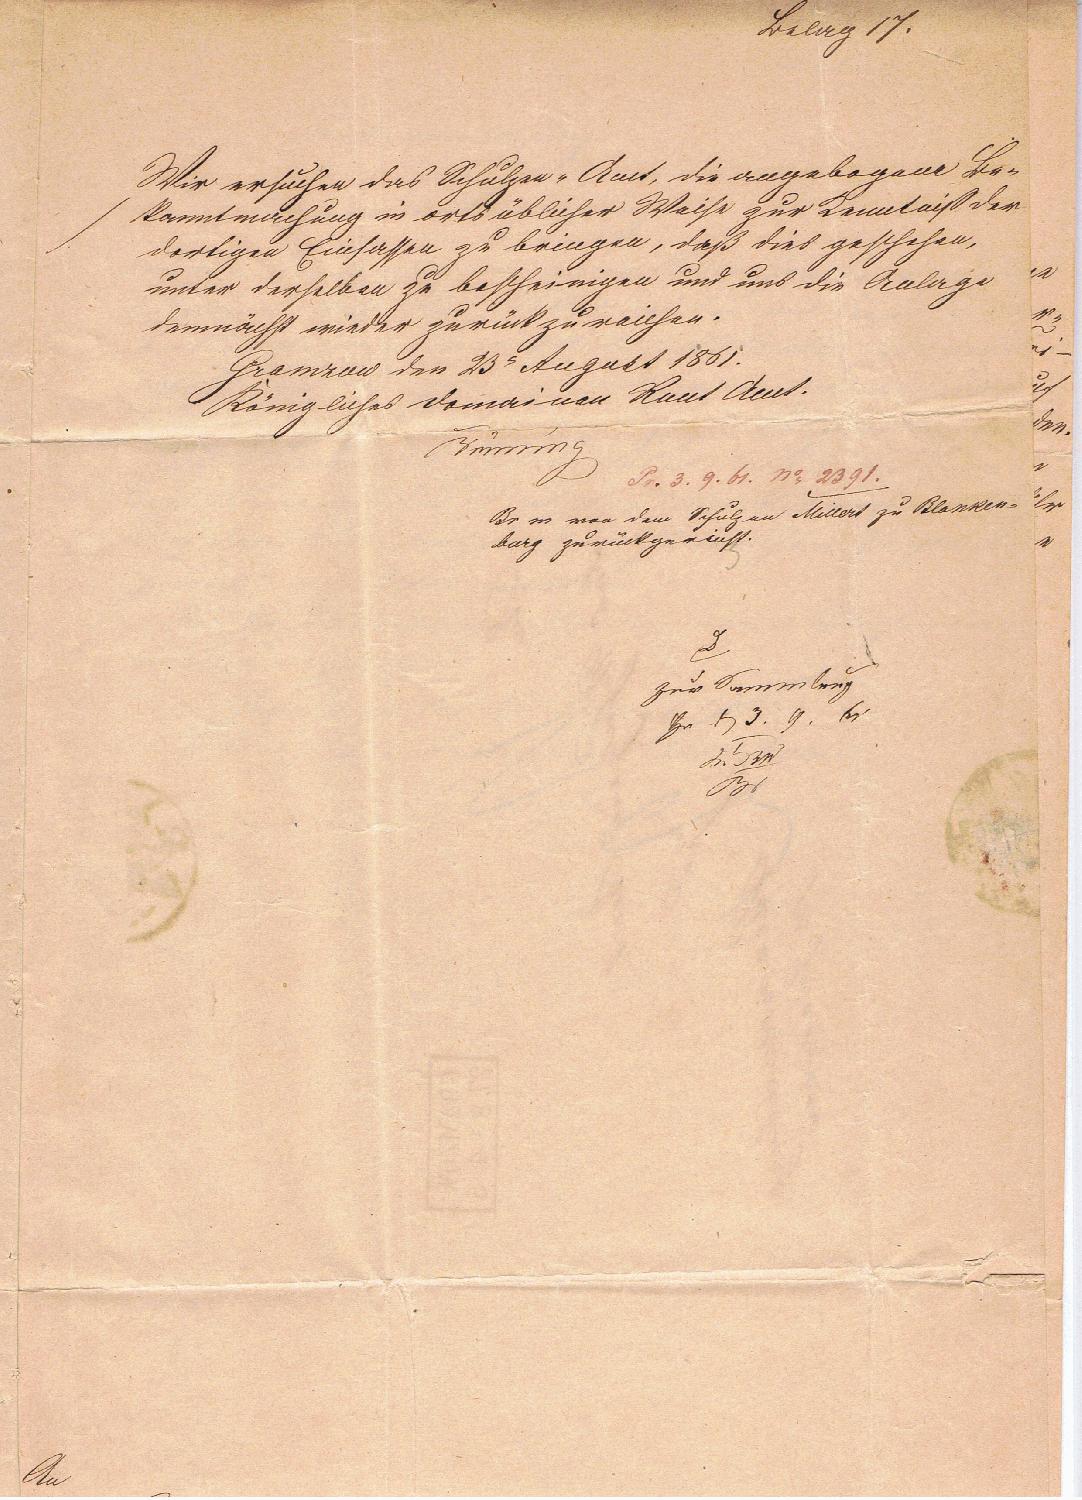 Belag 17.
Wir ersuchen das Schulzen-Amt, die angebogene Be-
kanntmachung in ortsüblicher Weise zur Kenntniß der
dortigen Einsassen zu bringen, daß dies geschehen,
unter derselben zu bescheinigen und uns die Anlage
demnächst wieder zurückzureichen.
Gramzow den 23 August 1861.
Königliches Domainen Rent Amt.
Pr. 3. 9. 61. No 2391.
von dem Schulzen Millert zu Blanken-
burg zurückgereicht.
zur Sammlung
3. 9. 61
An